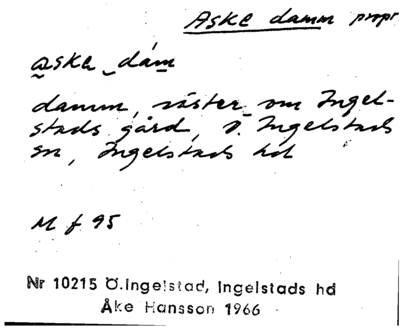 Aske damm propr
aske dám
damm, väster om Ingel-
stads gård, Ö. Ingelstads
sn, Ingelstads hd
M f 95
Nr 10215 Ö.Ingelstad, Ingelstads hd
Åke Hansson 1966